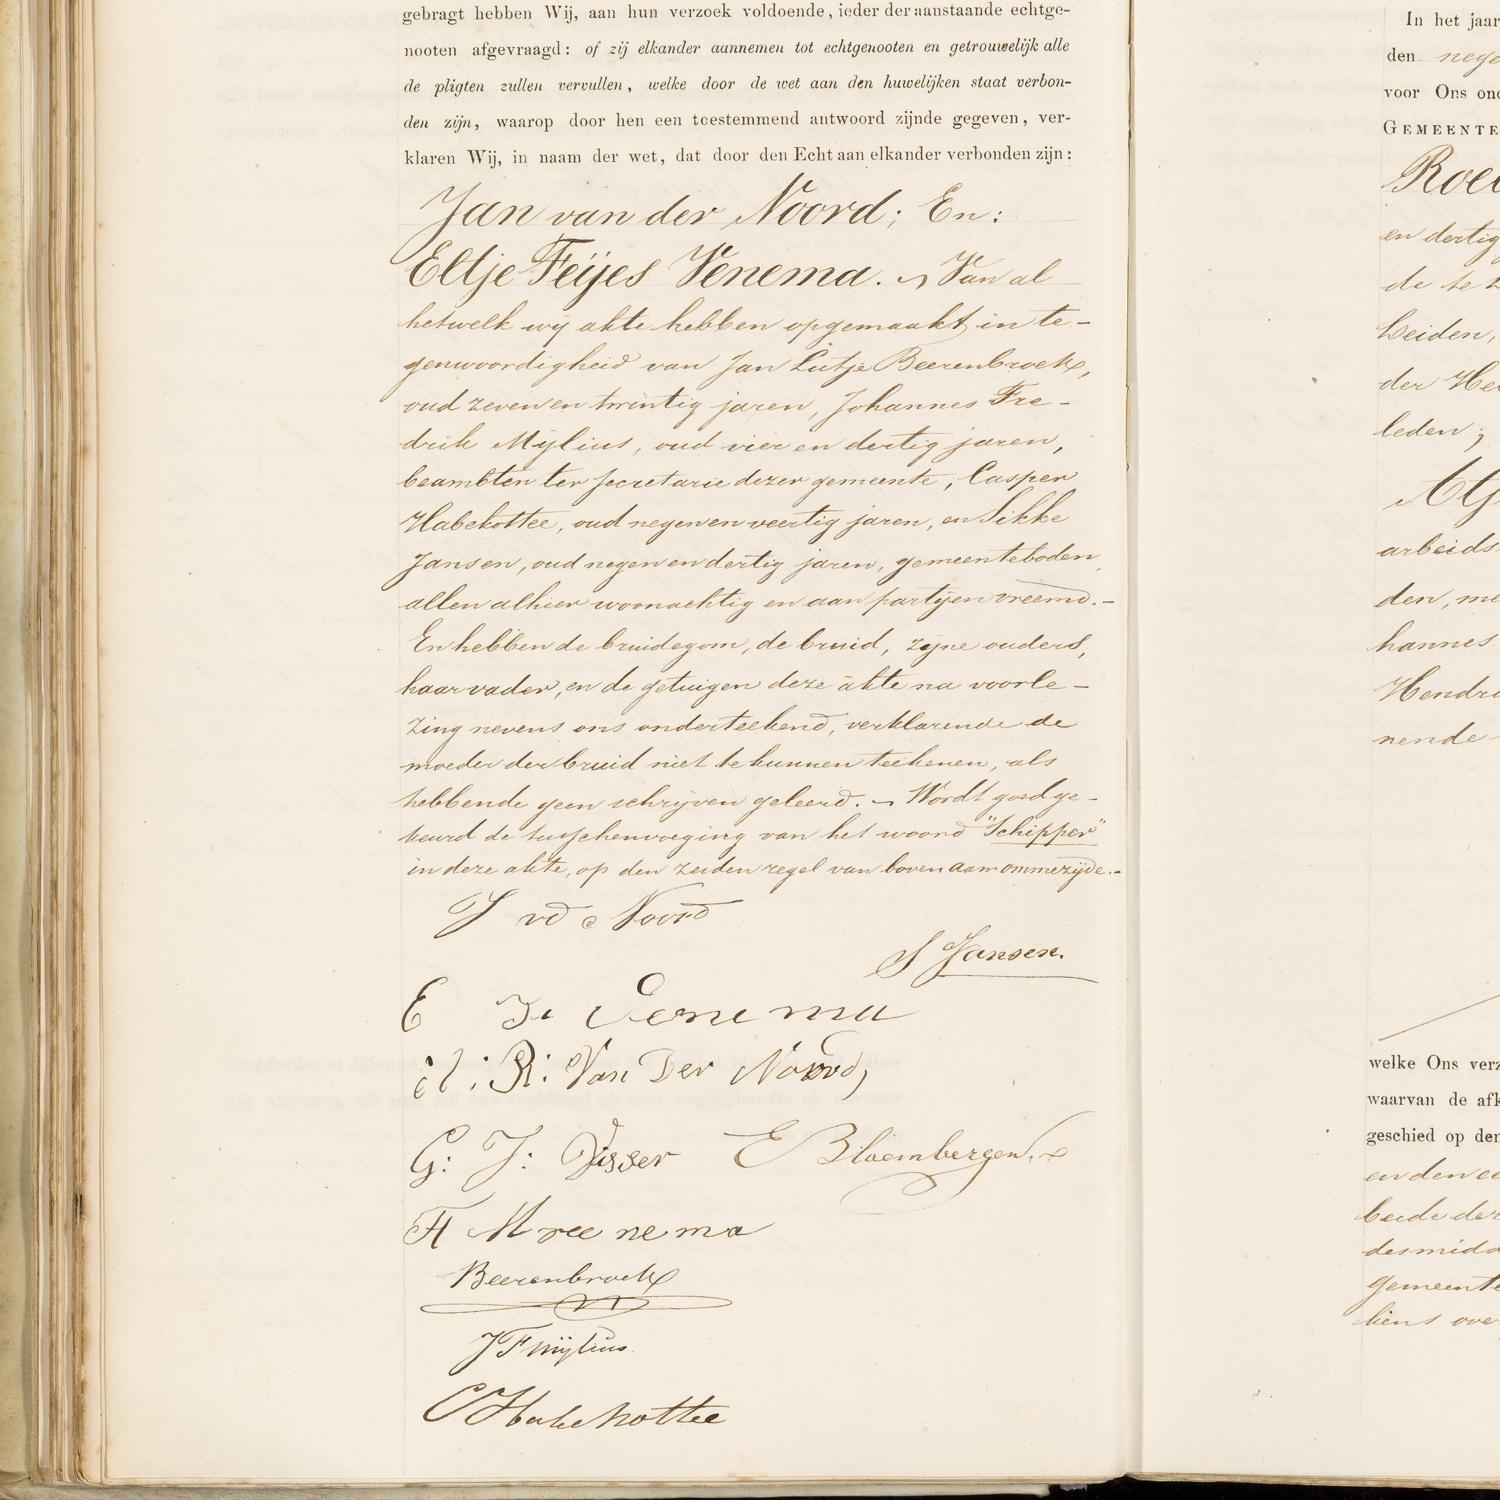 gebragt hebben Wij, aan hun verzoek voldoende, ieder der aanstaande echtge-
nooten afgevraagd: of zij elkander aannemen tot echtgenooten en getrouwelijk alle
de pligten zullen vervullen, welke door de wet aan den huwelijken staat verbon-
den zijn, waarop door hen een toestemmend antwoord zijnde gegeven, ver-
klaren Wij, in naam der wet, dat door den Echt aan elkander verbonden zijn:
Jan van der Noord; En:
Eltje Feijes Venema. Van al
hetwelk wij akte hebben opgemaakt in te-
genwoordigheid van Jan Lutje Beerenbroek,
oud zeven en twintig jaren, Johannes Fre-
drik Mylius, oud vier en dertig jaren,
beambten ter secretarie dezer gemeente, Casper
Habekottee, oud negen en veertig jaren, en Sikke
Jansen, oud negen en dertig jaren, gemeenteboden,
allen alhier woonachtig en aan partijen vreemd.-
En hebben de bruidegom, de bruid, zijne ouders,
haar vader, en de getuigen deze akte na voorle-
zing nevens ons onderteekend, verklarende de
moeder der bruid niet te kunnen teekenen, als
hebbende geen schrijven geleerd. Wordt goedge-
keurd de tusschenvoeging van het woord "Schipper"
in deze akte, op den zesden regel van boven aan ommezijde.-
J vd Noord
S Jansen.
E F. Venema
R: Van Der Noord,
G: J: Visser E Bloembergen
Beerenbroek
J F Mylius.
C Habekottee
In het jaar
den
voor Ons
GEMEENTE
en dertig
de te
Leiden,
der
leden;
arbeids
den,
hannes
nende
welke Ons
waarvan de
geschied op
en den
beide
gemeente